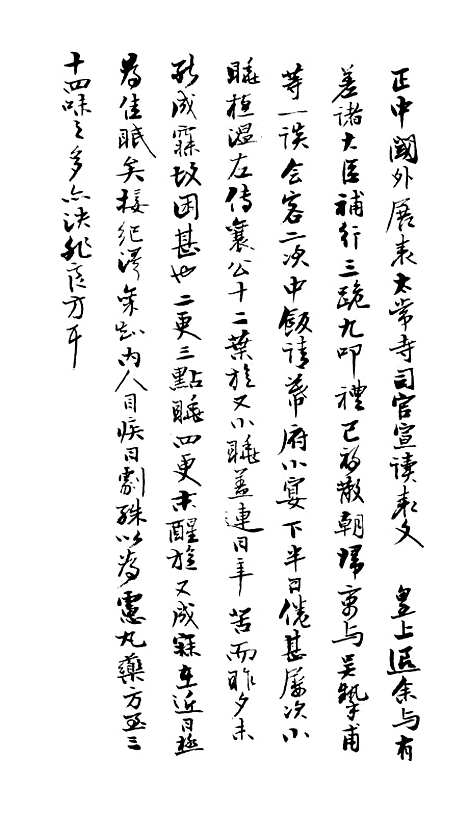 正中閾外展表太常寺司官宣读表文 皇上派余与有
差诸大臣補行三跪九叩禮巳初散朝歸寓与吴挚甫
等一谈会客二次中飯請幕府小宴下半日倦甚屡次小
睡植温左傳襄公十二葉旋又小睡盖連日辛苦而昨夕未
能成寐故困甚也二更三點睡四更末醒旋又成寐在近日極
為佳眠矣接纪澤 知内人目疾日劇殊以為慮丸藥方至三
十四味之多亦决非良方耳